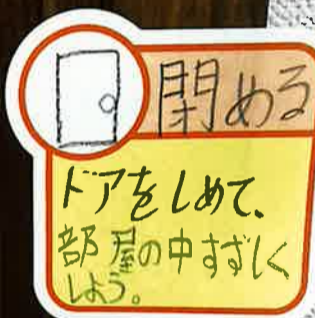 閉める
ドアをしめて、
部屋の中すずしく
しよう。